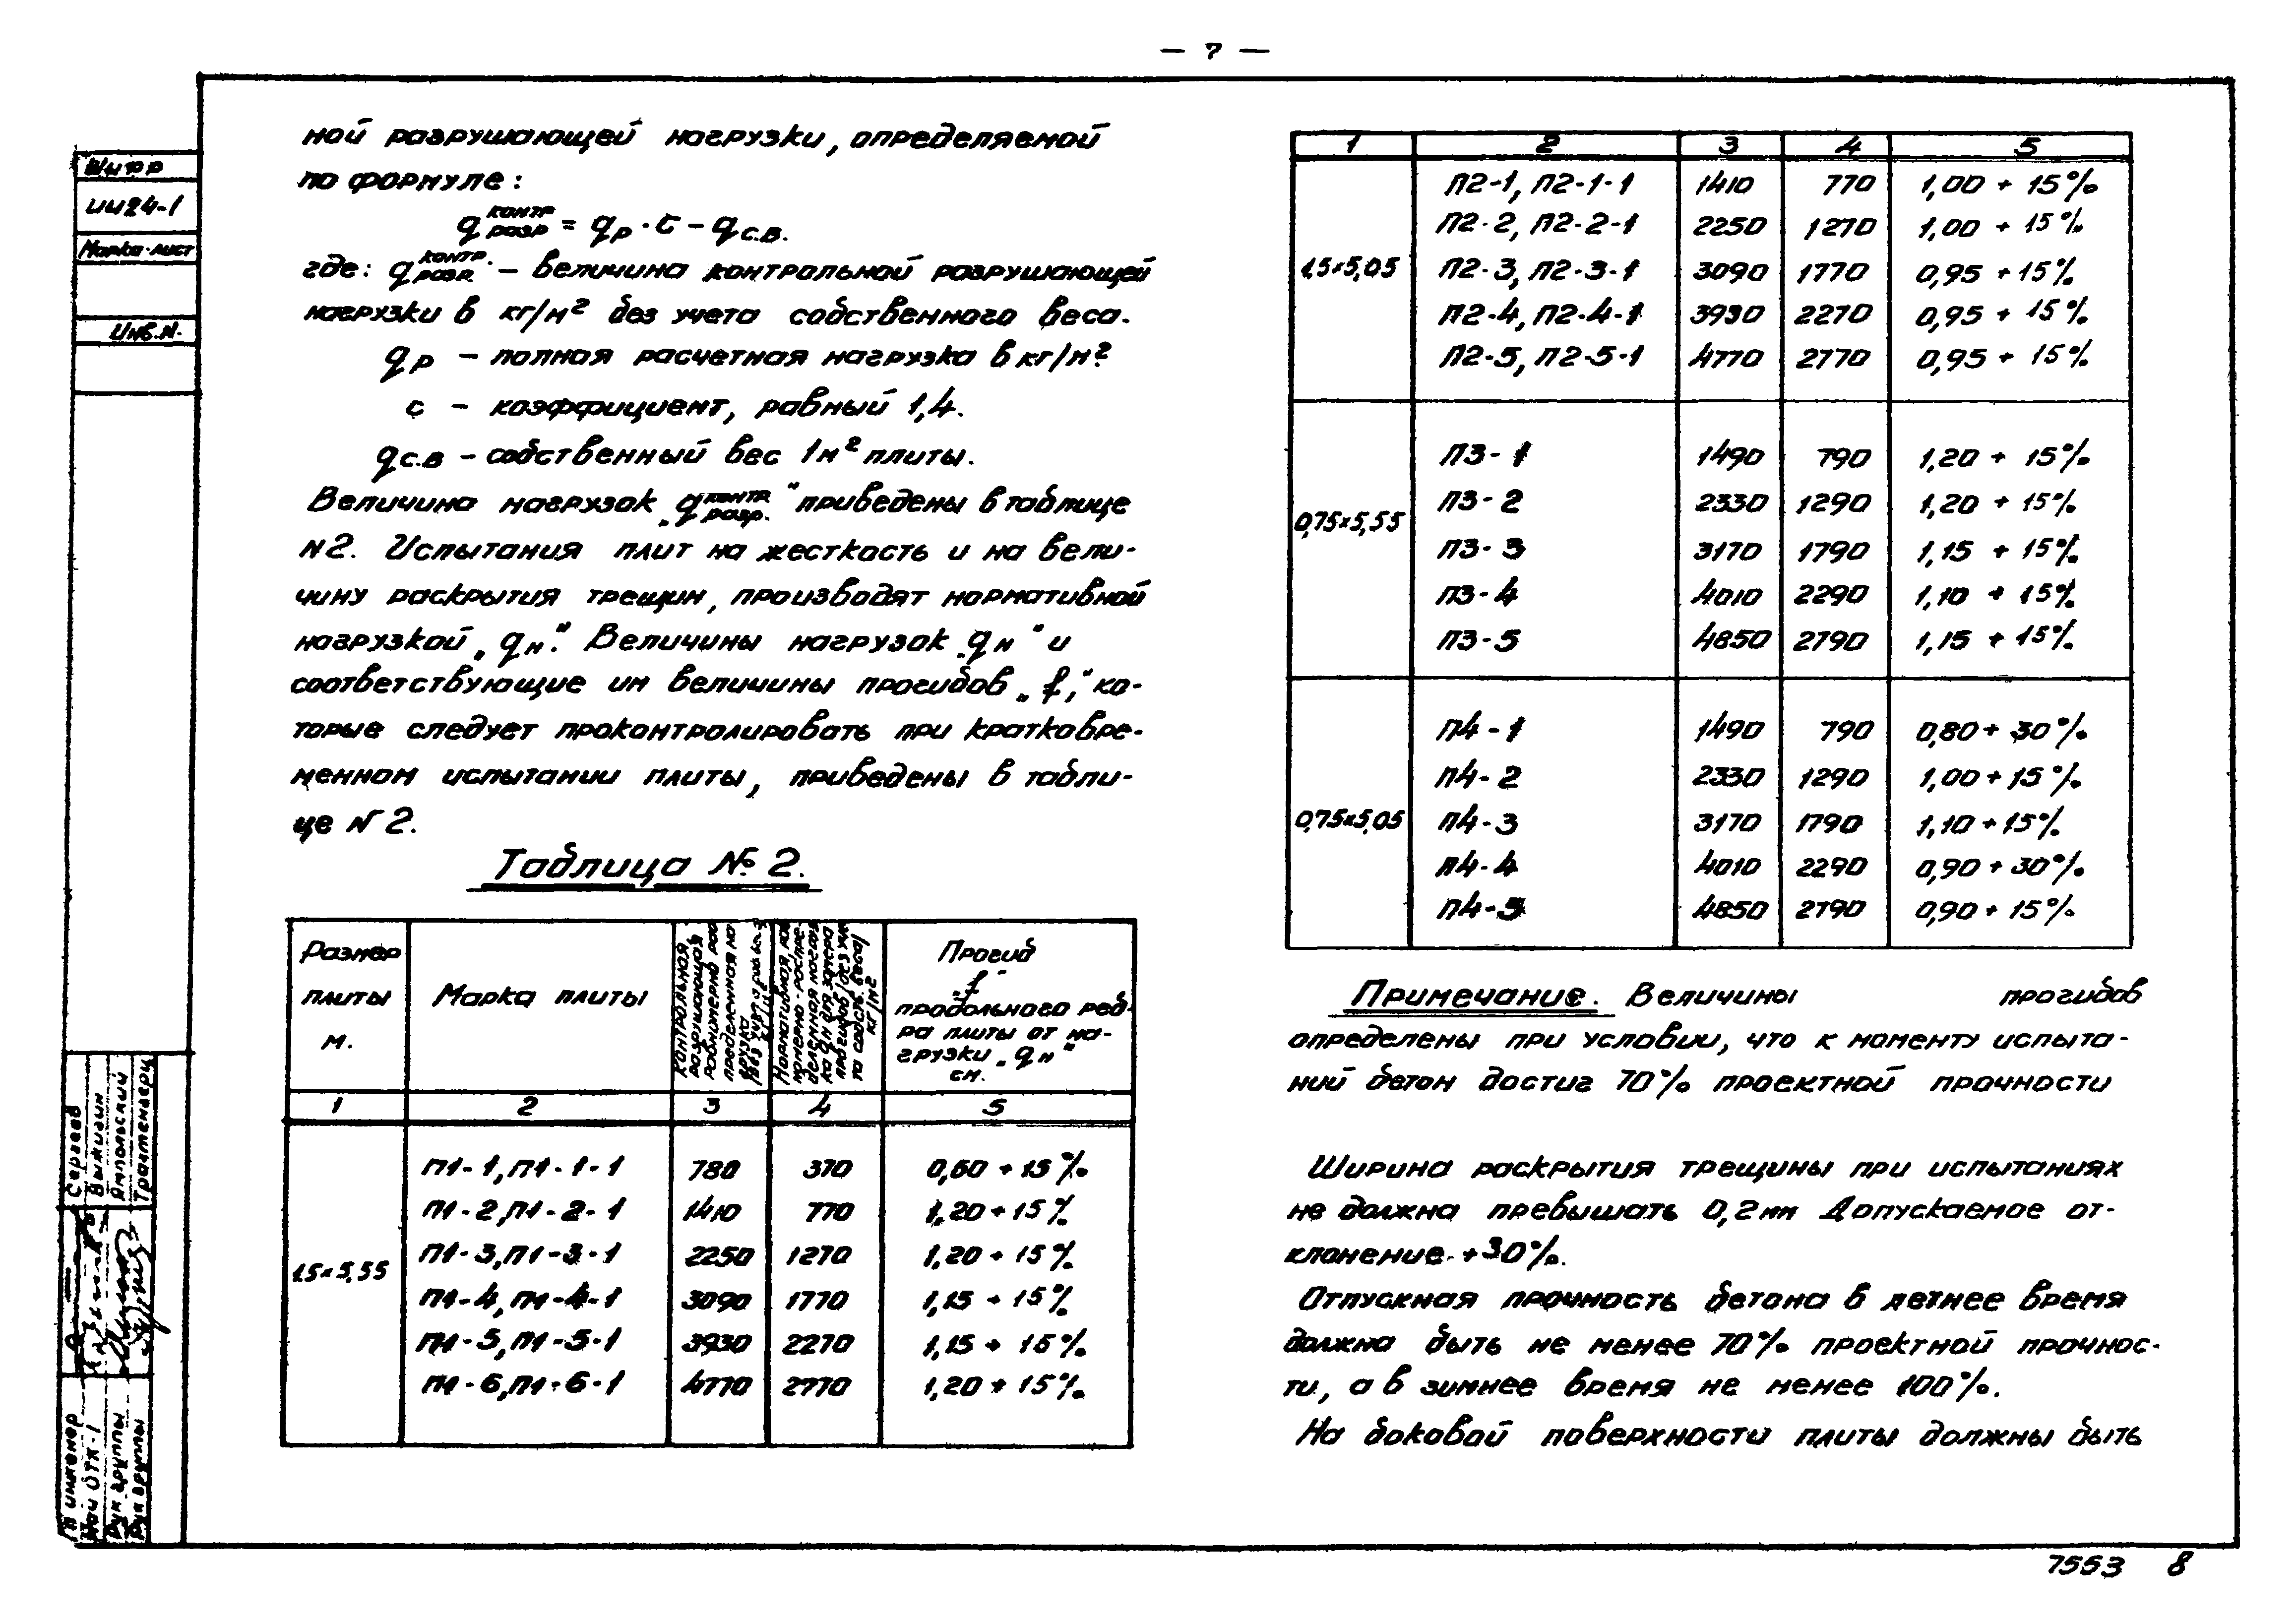 — 7 —
Шифр
ИИ24-1
Марка-лист
Инв.N.
Гл инженер
Нач ОТК-1
Рук группы
Рук группы
Сергеев
Выжигин
Ямпольский
ной разрушающей нагрузки, определяемой
по формуле:
q контр разр = qр · c – qс.в.
где: q контр. разр. – величина контрольной разрушающей
нагрузки в кг/м² без учета собственного веса.
qр – полная расчетная нагрузка в кг/м²
c – коэффициент, равный 1,4.
qс.в – собственный вес 1м² плиты.
Величина нагрузок „q контр разр.“ приведены в таблице
N2. Испытания плит на жесткость и на вели-
чину раскрытия трещин, производят нормативной
нагрузкой „qн“. Величины нагрузок „qн“ и
соответствующие им величины прогибов „f“, ко-
торые следует проконтролировать при кратковре-
менном испытании плиты, приведены в табли-
це N2.
Таблица № 2.
Размер
плиты
м.
Марка плиты
Контрольная
разрушающая
равномерно рас
пределенная на
грузка
Нормативная рав
номерно-распре-
деленная нагруз
ка qн для замера
прогибов /без уче
та собств. веса/
кг/м2
Прогиб
„f“
продольного реб-
ра плиты от на-
грузки „qн“
см.
1 2 3 4 5
1,5×5,55
П1-1, П1-1-1 780 370 0,60 + 15%
П1-2, П1-2-1 1410 770 1,20 + 15%
П1-3, П1-3-1 2250 1270 1,20 + 15%
П1-4, П1-4-1 3090 1770 1,15 + 15%
П1-5, П1-5-1 3930 2270 1,15 + 16%
П1-6, П1-6-1 4770 2770 1,20 + 15%
1 2 3 4 5
1,5×5,05
П2-1, П2-1-1 1410 770 1,00 + 15%
П2-2, П2-2-1 2250 1270 1,00 + 15%
П2-3, П2-3-1 3090 1770 0,95 + 15%
П2-4, П2-4-1 3930 2270 0,95 + 15%
П2-5, П2-5-1 4770 2770 0,95 + 15%
0,75×5,55
П3-1 1490 790 1,20 + 15%
П3-2 2330 1290 1,20 + 15%
П3-3 3170 1790 1,15 + 15%
П3-4 4010 2290 1,10 + 15%
П3-5 4850 2790 1,15 + 15%
0,75×5,05
П4-1 1490 790 0,80 + 30%
П4-2 2330 1290 1,00 + 15%
П4-3 3170 1790 1,10 + 15%
П4-4 4010 2290 0,90 + 30%
П4-5 4850 2790 0,90 + 15%
Примечание. Величины прогибов
определены при условии, что к моменту испыта-
ний бетон достиг 70% проектной прочности
Ширина раскрытия трещины при испытаниях
не должна превышать 0,2мм Допускаемое от-
клонение +30%.
Отпускная прочность бетона в летнее время
должна быть не менее 70% проектной прочнос-
ти, а в зимнее время не менее 100%.
На боковой поверхности плиты должны быть
7553 8